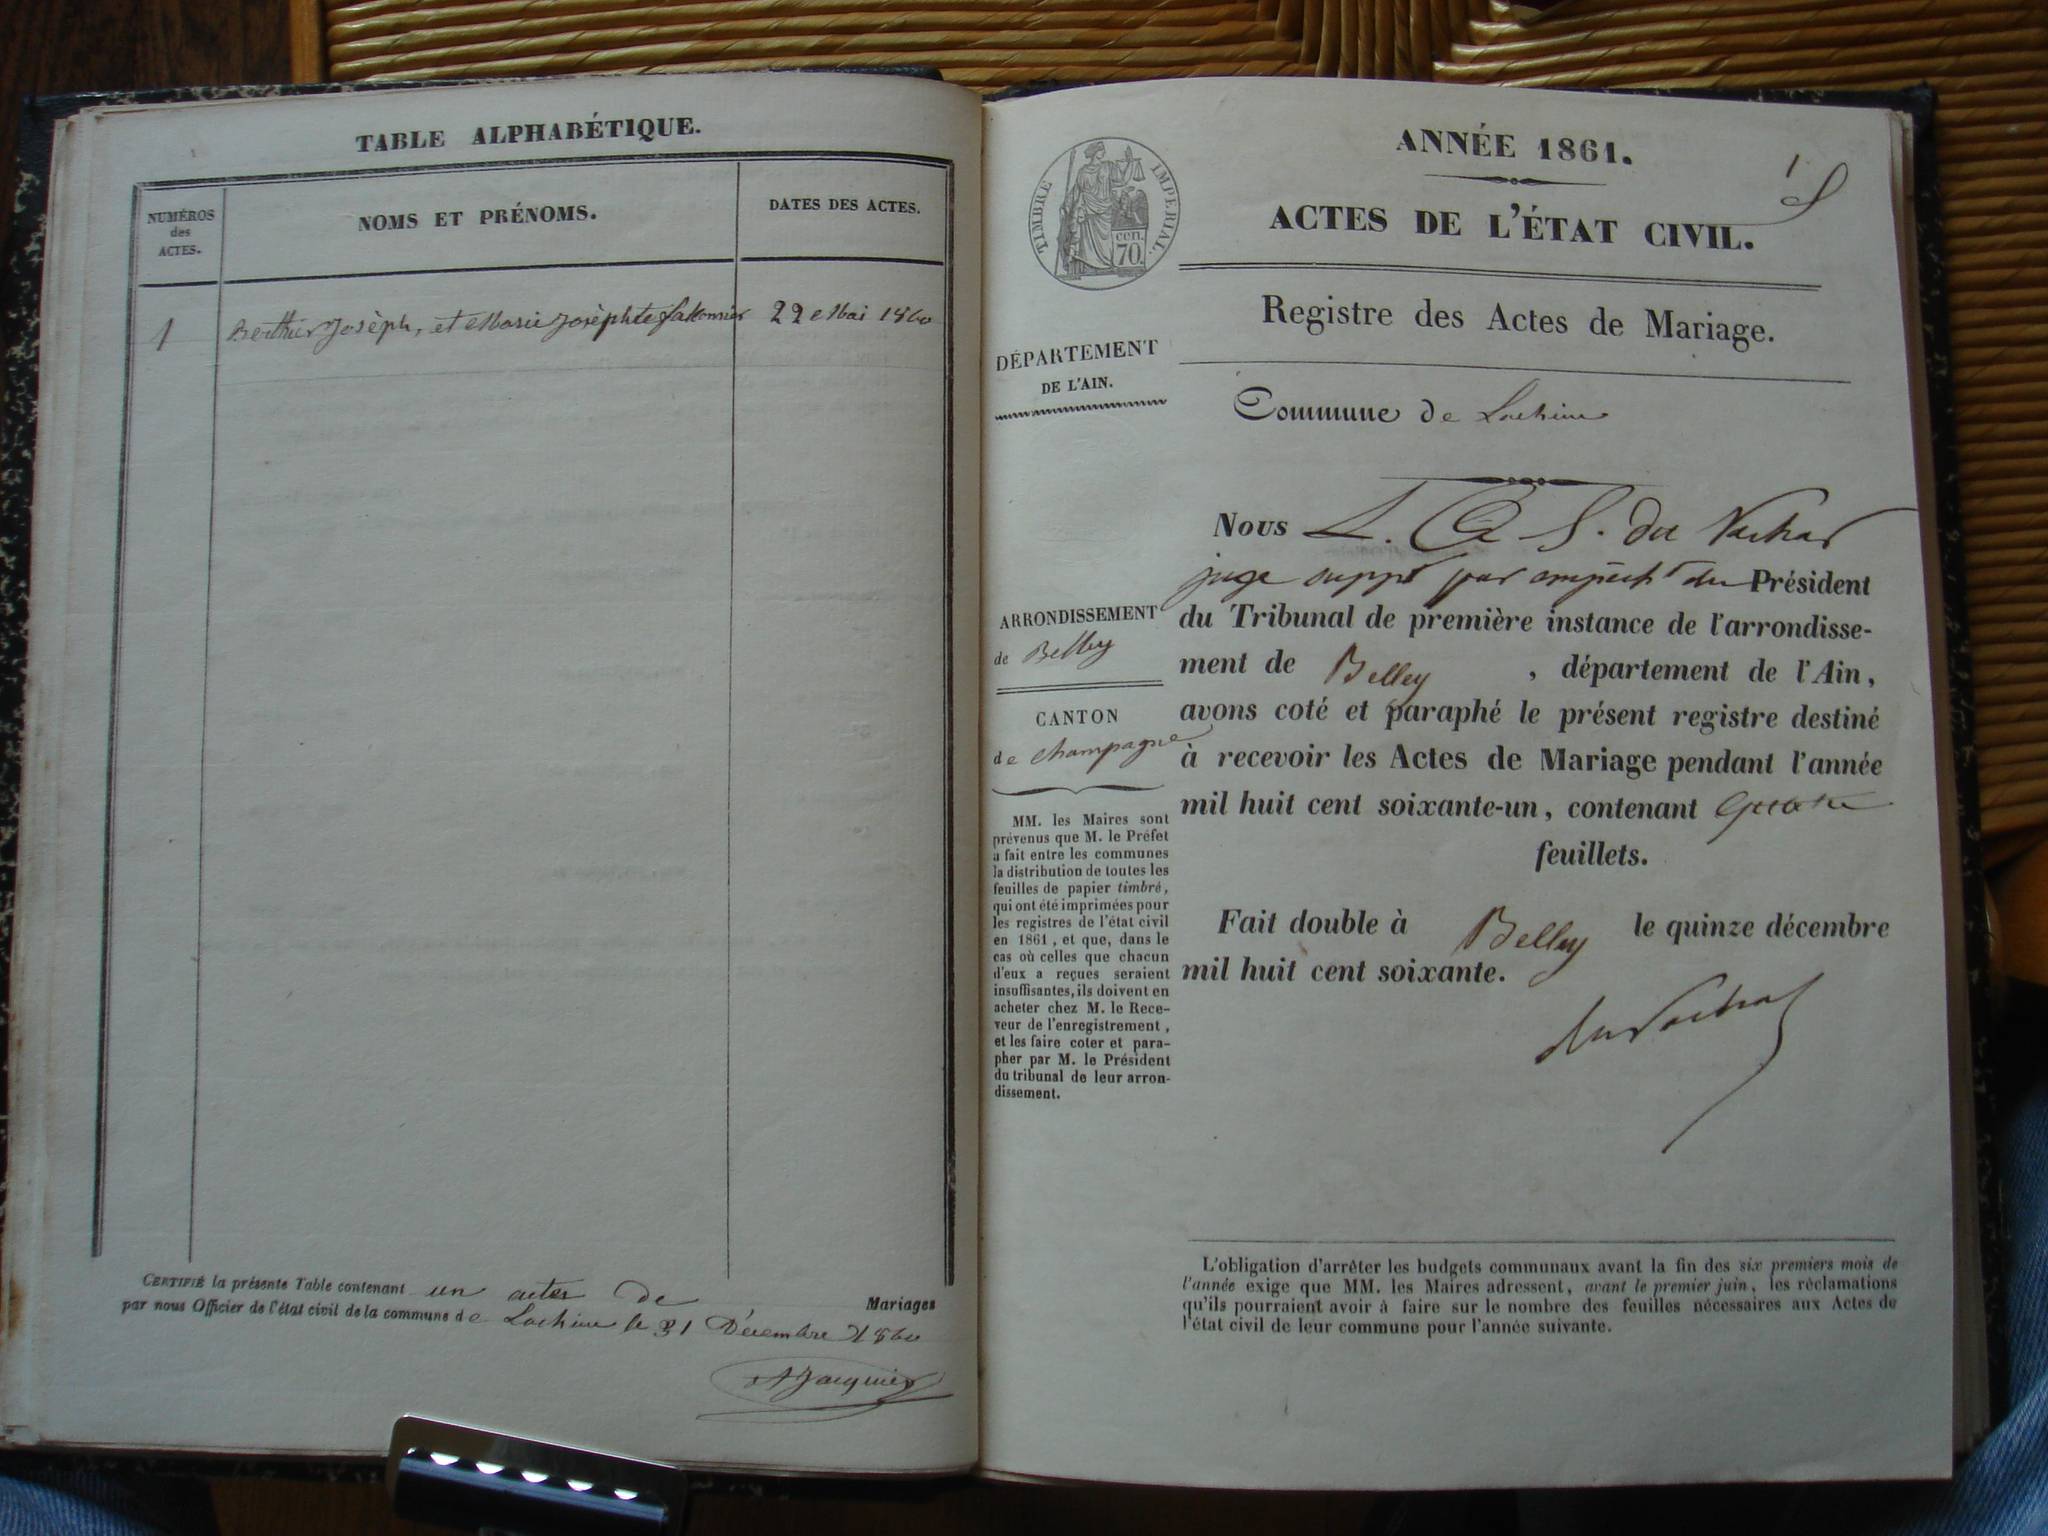 TABLE ALPHABÉTIQUE.
NUMÉROS
des
ACTES.
NOMS ET PRÉNOMS.
DATES DES ACTES.
1 Berthier Josèph, et Marie Josèphte 22 Mai 1860
CERTIFIÉ la présente Table contenant un actes de Mariages
par nous Officier de l'état civil de la commune de Lochieu le 31 Décembre 1860
Jacquier
ANNÉE 1861.
1
ACTES DE L'ÉTAT CIVIL.
TIMBRE IMPERIAL.
cen.
70.
Registre des Actes de Mariage.
DÉPARTEMENT
DE L'AIN.
Commune de Lochieu
ARRONDISSEMENT
de Belley
CANTON
de Champagne
MM. les Maires sont
prévenus que M. le Préfet
a fait entre les communes
la distribution de toutes les
feuilles de papier timbré,
qui ont été imprimées pour
les registres de l'état civil
en 1861, et que, dans le
cas où celles que chacun
d'eux a reçues seraient
insuffisantes, ils doivent en
acheter chez M. le Rece-
veur de l'enregistrement,
et les faire coter et para-
pher par M. le Président
du tribunal de leur arron-
dissement.
Nous L. S. du Vachat
juge suppt par empecht du Président
du Tribunal de première instance de l'arrondisse-
ment de Belley , département de l'Ain,
avons coté et paraphé le présent registre destiné
à recevoir les Actes de Mariage pendant l'année
mil huit cent soixante-un, contenant quatre
feuillets.
Fait double à Belley le quinze décembre
mil huit cent soixante.
du Vachat
L'obligation d'arrêter les budgets communaux avant la fin des six premiers mois de
l'année exige que MM. les Maires adressent, avant le premier juin, les réclamations
qu'ils pourraient avoir à faire sur le nombre des feuilles nécessaires aux Actes de
l'état civil de leur commune pour l'année suivante.